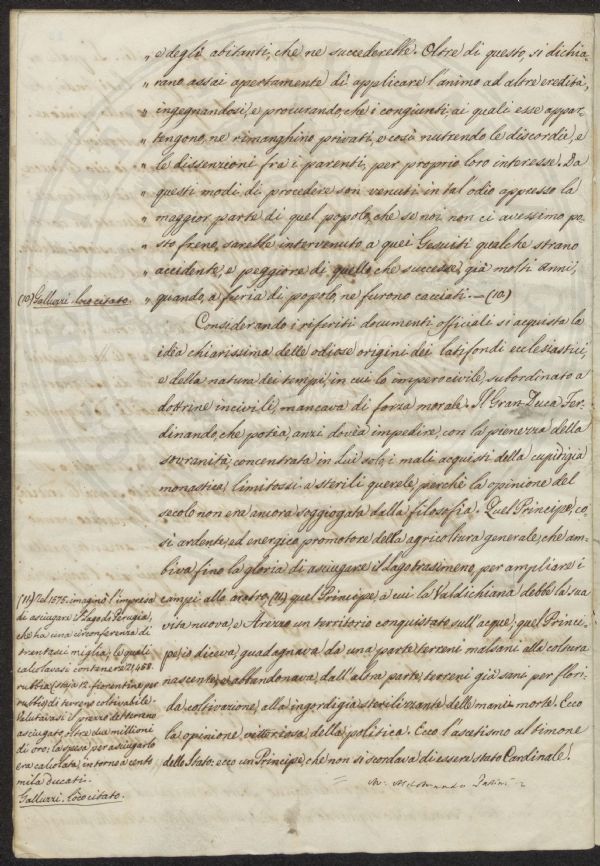 „ e degli abitanti, che ne succederebbe. Oltre di questo, si dichia-
„ rano assai apertamente di applicare l'animo ad altre eredità,
„ ingegnandosi, e procurando, che i congiunti ai quali esse appar-
„ tengono, ne rimanghino privati, e così nutrendo le discordie, e
„ le dissenzioni fra i parenti, per proprio loro interesse. Da
„ questi modi di procedere son venuti in tal odio appresso la
„ maggior parte di quel popolo, che se noi non ci avessimo po-
„ sto freno, sarebbe intervenuto a quei Gesuiti qualche strano
„ accidente, e peggiore di quello che successe, già molti anni,
„ quando, a furia di popolo, ne furono cacciati. — (10)
(10) Galluzzi. loco citato.
Considerando i riferiti documenti officiali si acquista la
idea chiarissima delle odiose origini dei latifondi ecclesiastici,
e della natura dei tempi, in cui lo impero civile, subordinato a
dottrine incivili, mancava di forza morale. Il Gran-Duca Fer-
dinando, che potea, anzi dovea impedire, con la pienezza della
sovranità, concentrata in Lui solo, i mali acquisti della cupidigia
monastica, limitossi a sterili querele, perchè la opinione del
secolo non era ancora soggiogata dalla filosofia. Quel Principe, co-
sì ardente, ed energico promotore della agricoltura generale, che am-
biva fino la gloria di asciugare il Lago trasimeno, per ampliare i
campi allo aratro, (11) quel Principe, a cui la Valdichiana debbe la sua
vita nuova, e Arezzo un territorio conquistato sull'acque; quel Princi-
pe, io diceva, guadagnava da una parte terreni malsani alla coltura
nascente, e abbandonava, dall'altra parte, terreni già sani per flori-
da coltivazione, alla ingordigia sterilizzante delle mani-morte. Ecco
la opinione vittoriosa della politica. Ecco l'ascetismo al timone
dello Stato: ecco un Principe, che non si scordava di essere stato Cardinale!
(11) Nel 1575. imaginò l'impresa
di asciugare il Lago di Perugia,
che ha una circonferenza di
trentasei miglia, le quali
calcolavasi contenere 21,468.
rubbia (staja 12. fiorentine per
rubbio) di terreno coltivabile.
Valutavasi il prezzo del terreno
asciugato, oltre due millioni
di oro: la spesa per asciugarlo
era calcolata, intorno a cento
mila ducati.
Galluzzi. loco citato.